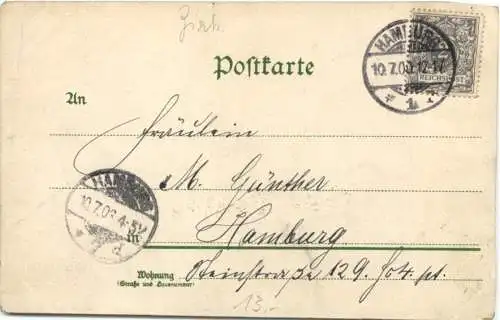 Zirk
HAMBURG
10.7.00.12-1N
* 1 *
REICHSPOST
Postkarte
An
Fräulein
M. Günther
HAMBURG
10.7.00.4-5N
in
Hamburg
Wohnung
(Straße und Hausnummer)
Steinstraße 129. Hotp. pt.
13,-